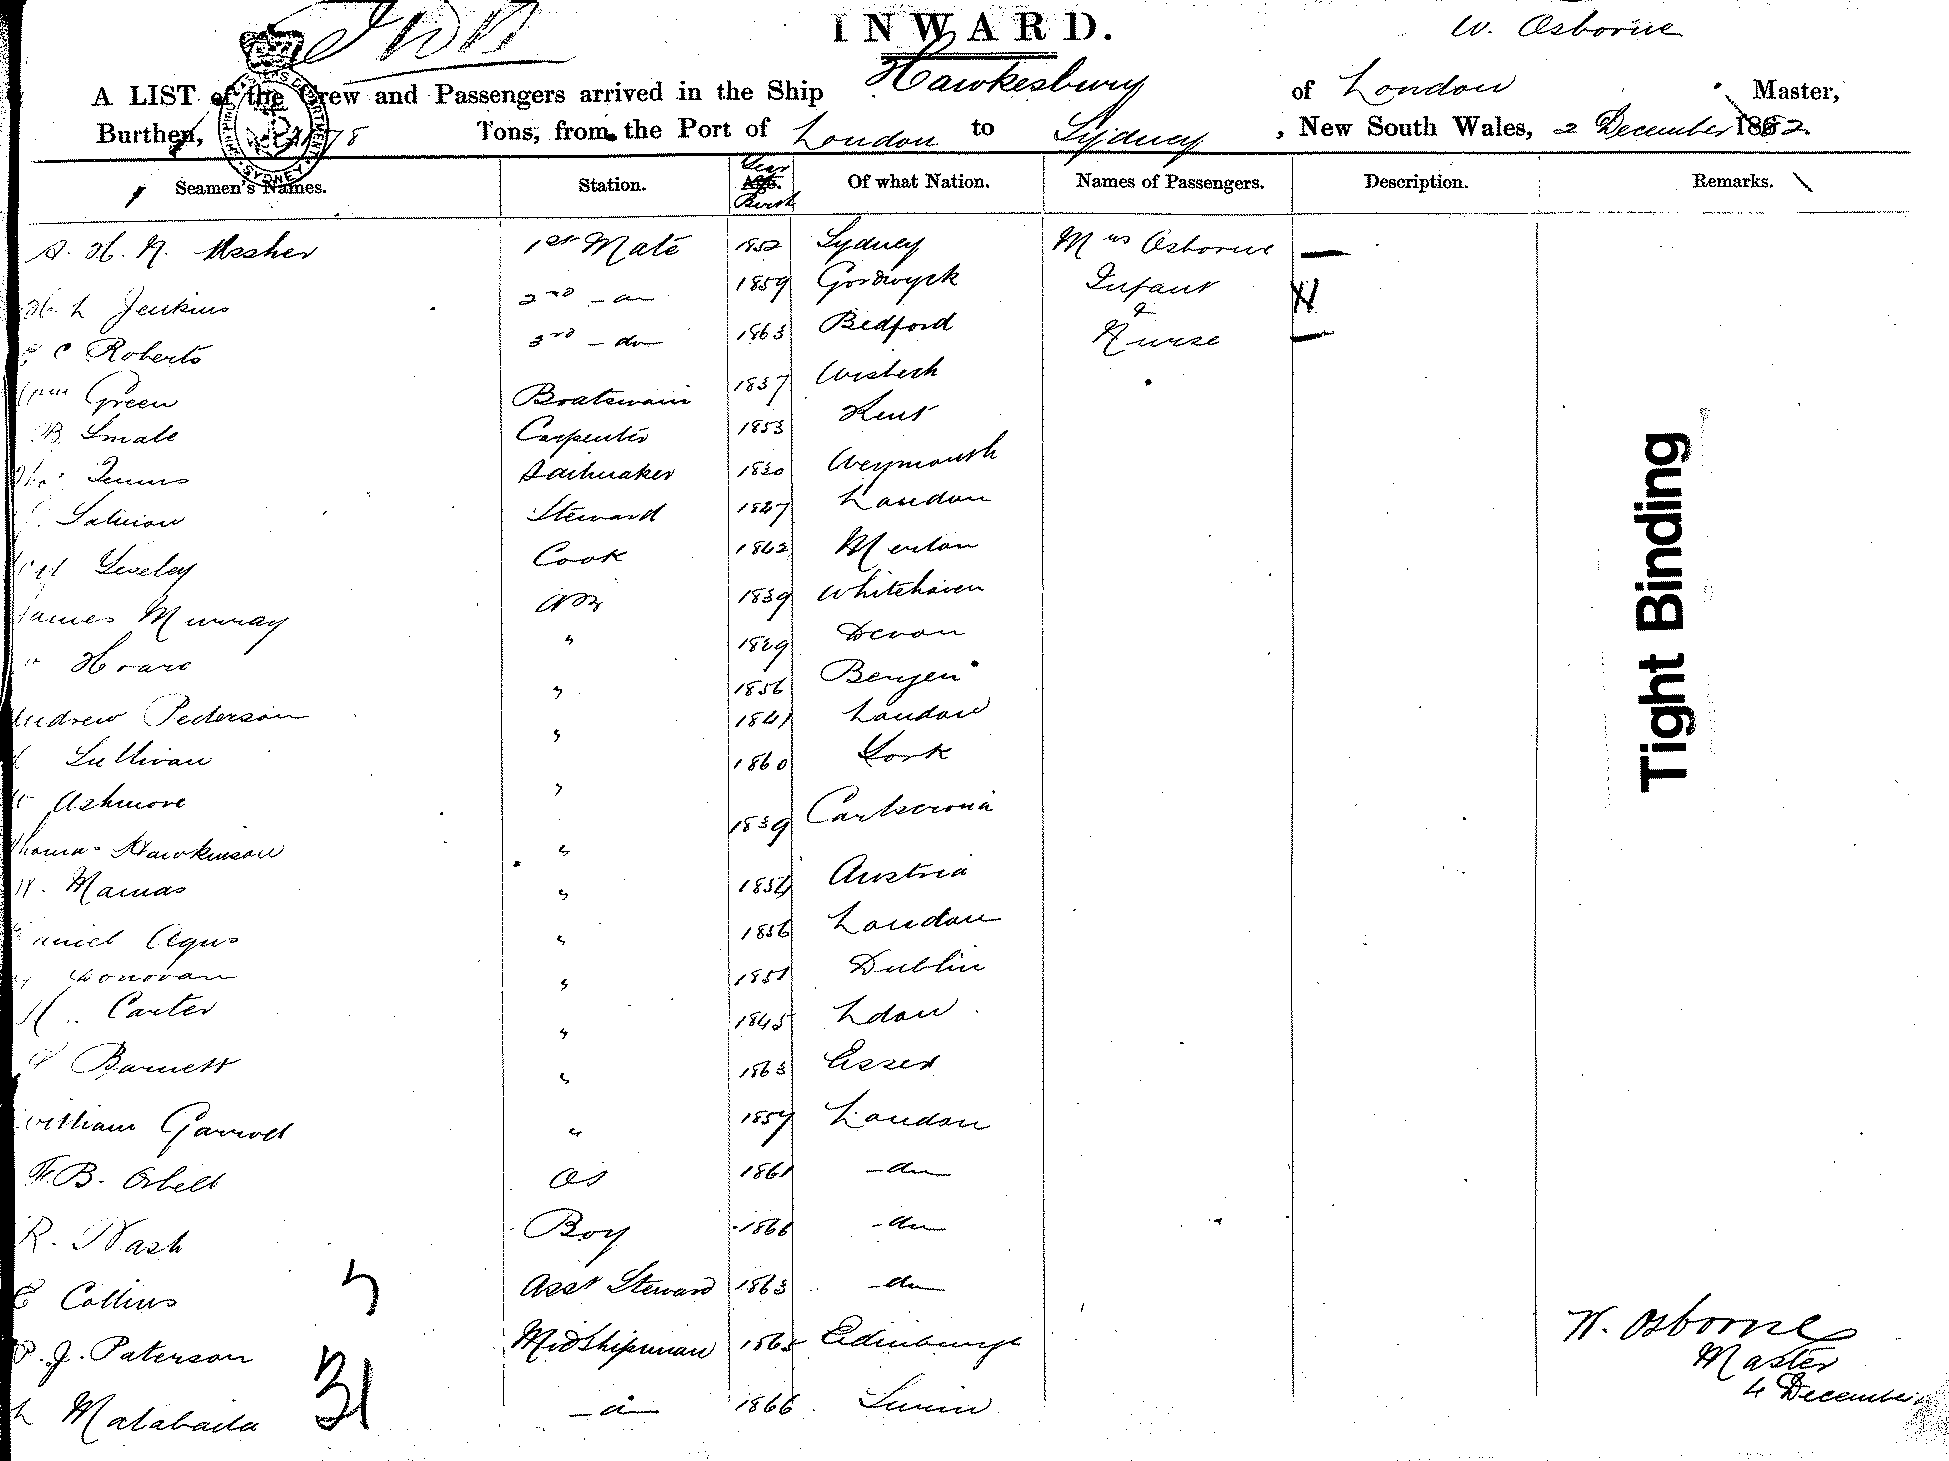 INWARD.
W. Osborne
A LIST of the Crew and Passengers arrived in the Ship Hawkesbury of London Master,
Burthen, Tons, from the Port of London to Sydney, New South Wales, 2 December 1882
Seamen's Names. Station. Year Age. Birth Of what Nation. Names of Passengers. Description. Remarks.
1st Mate 1852 Sydney Mrs Osborne —
Jenkins 2nd - do 1859 Infant
C Roberts 3rd - do 1863 Bedford & Nurse —
Green Boatswain 1837 Wisbech
B. Smale Carpenter 1853 Kent
Sailmaker 1830 Weymouth
Steward 1827 London
Cook 1862 Merton
James Murray AB 1839 Whitehaven
Hoare " 1829 Devon
Andrew Pederson " 1856 Bergen
Sullivan " 1841 London
Ashmore " 1860
Thomas Hawkinson " 1839 Carlscrona
Mamas " 1854 Austria
Daniel Agus " 1856 London
Donovan " 1851 Dublin
Carter " 1845 Ldon
Barnett " 1863 Essex
William Garrod " 1857 London
B. Orbell OS 1861 - do
R. Nash Boy 1866 - do
Collins Asst Steward 1863 - do
J. Paterson Midshipman 1865 Edinburgh
- do 1866
31
W. Osborne
Master
4 December
Tight Binding